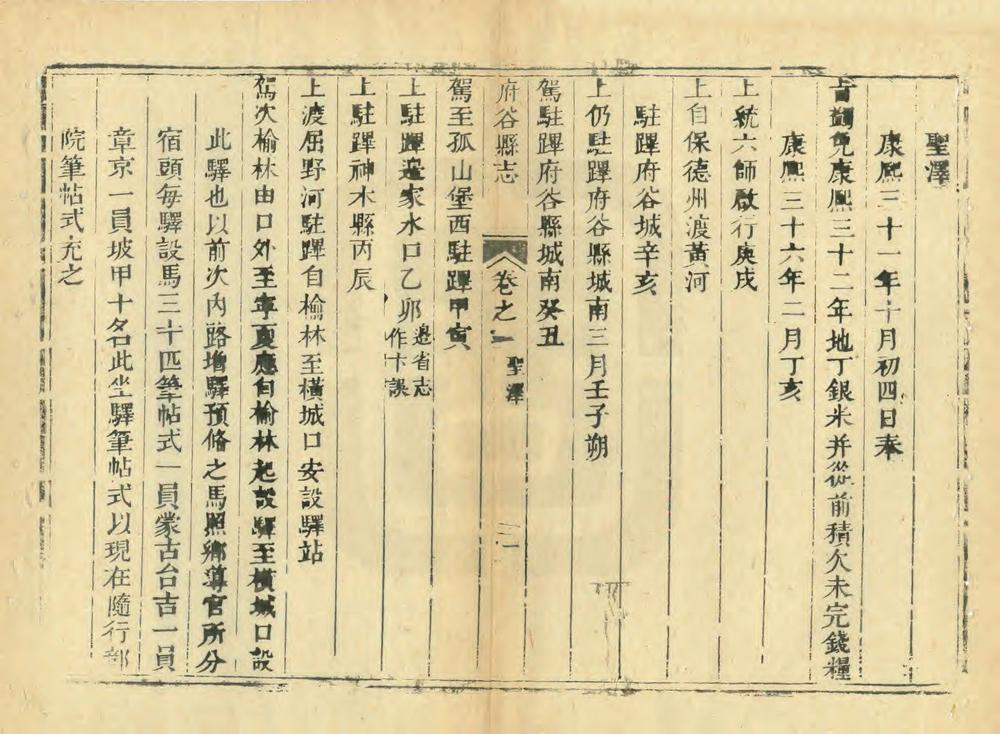 聖澤
康熙三十一年十月初四日奉
旨蠲免康熙三十二年地丁銀米并從前積欠未完錢糧
康熙三十六年二月丁亥
上統六師啟行庚戌
上自保德州渡黃河
駐蹕府谷城辛亥
上仍駐蹕府谷縣城南三月壬子朔
駕駐蹕府谷縣城南癸丑
府谷縣志 卷之一 聖澤
駕至孤山堡西駐蹕甲寅
上駐蹕邉家水口乙卯邉省志作卞誤
上駐蹕神木縣丙辰
上渡屈野河駐蹕自榆林至橫城口安設驛站
駕次榆林由口外至寧夏應自榆林起設驛至橫城口設
此驛也以前次內路增驛預備之馬照鄉導官所分
宿頭每驛設馬三十匹筆帖式一員蒙古台吉一員
章京一員坡甲十名此坐驛筆帖式以現在隨行部
院筆帖式充之